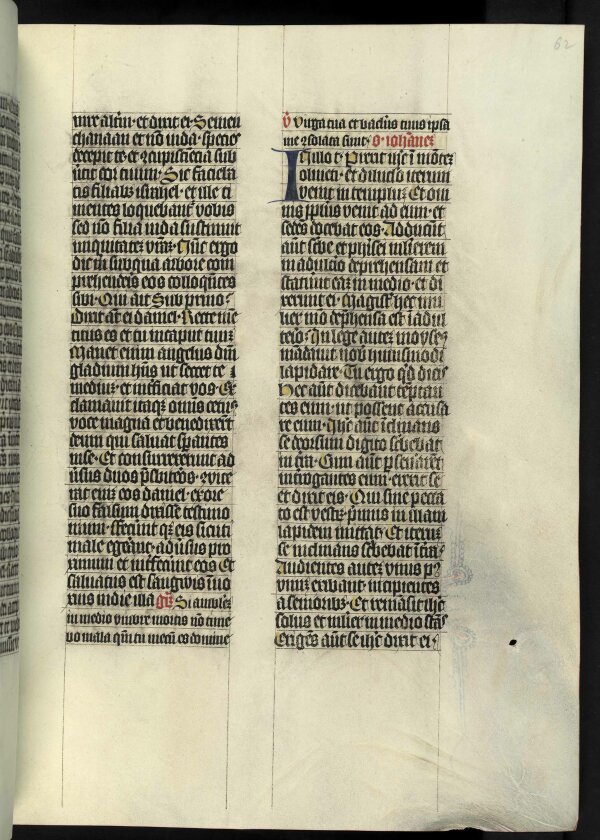 62
mire alterū · et dixit ei · Semen
chanaan et nō iuda · species
decepit te · et cōcupiscēcia sub
uertit cor tuum · Sic faciela
tis filiabus israhel · et ille ti
mentes loquebant' vobis
sed nō filia iuda sustinuit
iniquitatē vrām · Nūc ergo
dic m̄ sub qua arbore com
prehenderis eos colloquētes
sibi · Qui ait Sub prino ·
Dixit aūt ei daniel · Recte mē
titus es et tu in caput tuū
Manet enim angelus dn̄i
gladium hn̄s ut secet te
mediū · et interficiat vos · Ex
clamauit itaqꝫ omnis cetus
voce magna et benedixerūt
deum qui saluat sperantes
in se · Et consurrexerunt ad
uersus duos presbiteros · cōuice
rat enī eos daniel · ex ore
suo falsum dixisse testimo
nium · feceruntqꝫ eis sicuti
male egerāt · aduersus pro
ximum et interfecerūt eos · Et
saluatus est sanguis īno
xius in die illa G̅r Si ambulē
in medio umbre mortis nō time
bo mala qm̄ tu mecū es domine
V̄ Virga tua et baculus tuus ipsa
me cōsolata sunt · S · iohānem
In illo t · Perrexit ihc̄ ī mōtem
oliueti · et diluculo iterum
venit in templum · Et om
nis ppl̄us venit ad eum · et
sedens docebat eos · Adducūt
aūt scribe et pharisei mulierem
in adulterio deprehensam et
statuerunt eam in medio · et di
xerunt ei · Magister hec mu
lier modo deprehensa est ī adul
terio · In lege autē moyses
mādauit nob̄ huiusmodi
lapidare · Tu ergo qd̄ dicis
Hec aūt dicebant tēptan
tes eum · ut possent accusa
re eum · ihc̄ aūt īclinans
se deorsum digito scribebat
in terra · Cum aūt perseuerarēt
interrogantes eum · erexit se
et dixit eis · Qui sine pecca
to est vestrū · primus in illam
lapidem mittat · Et iterum
se inclinans scribebat ī terra ·
Audientes autē unus post
unum exibant incipientes
a senioribus · Et remansit ihc̄
solus et mulier in medio stās
Erigens aūt se ihc̄ dixit ei ·